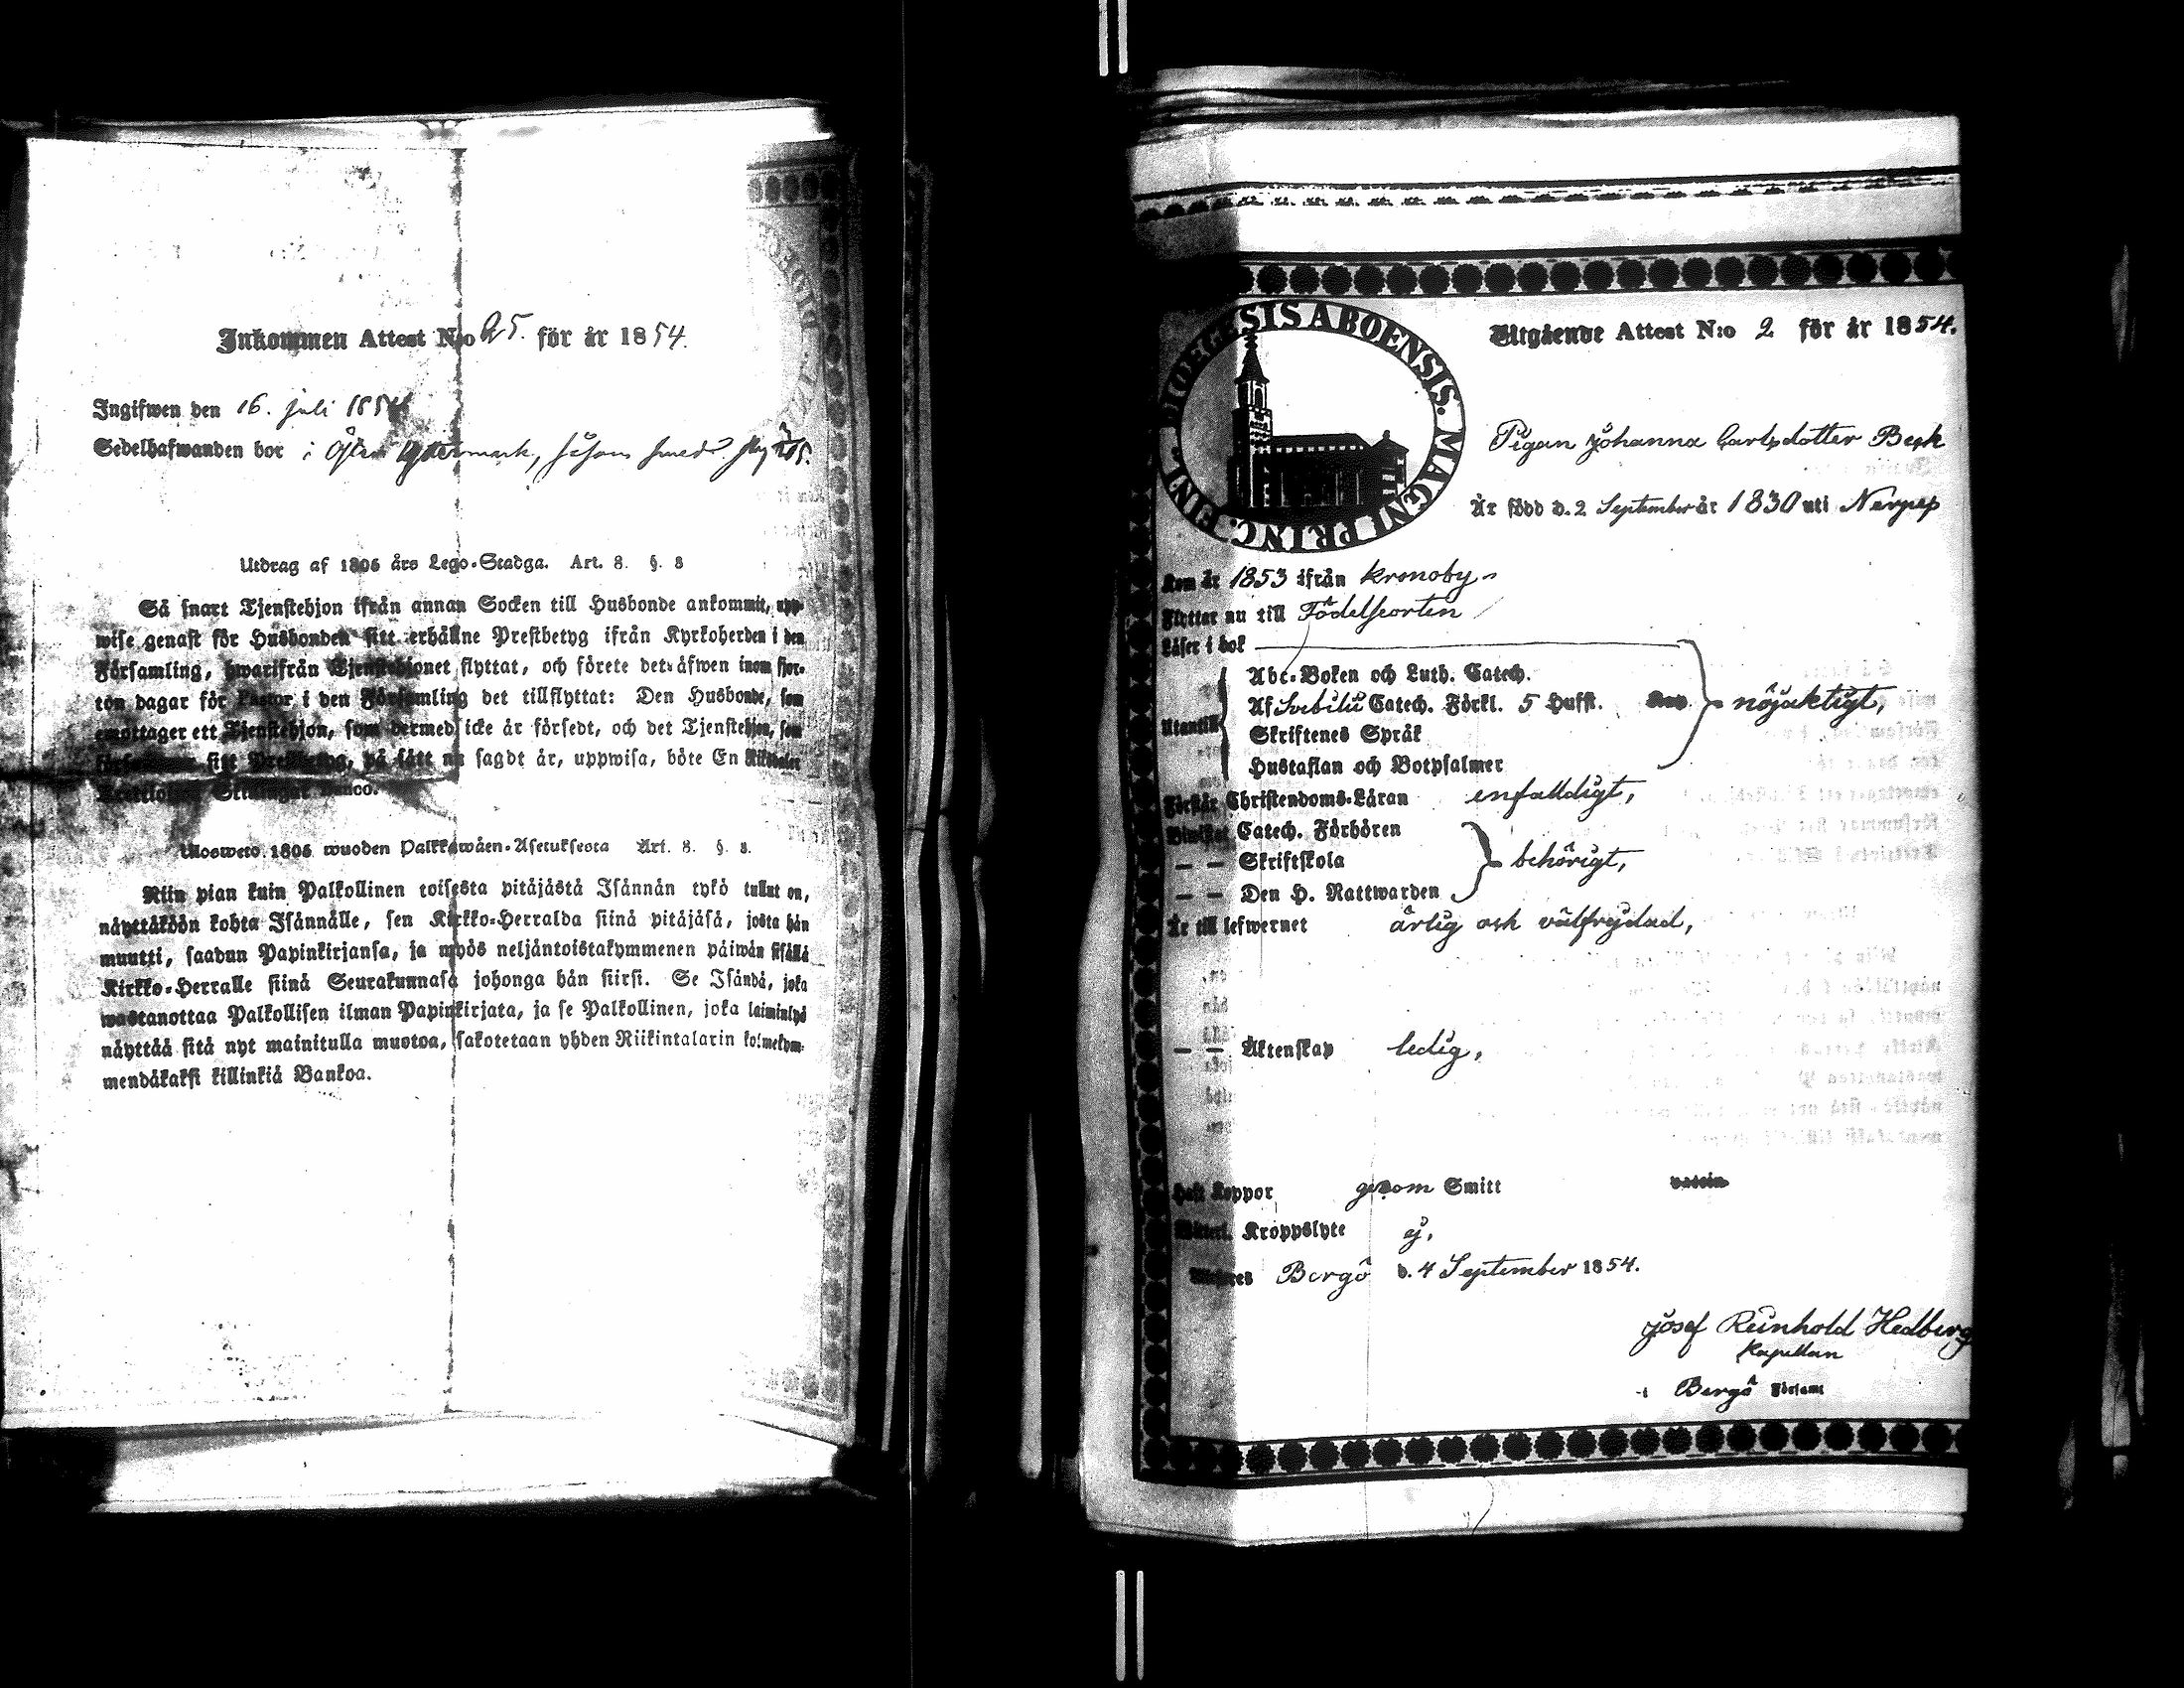 Inkommen Attest N:o 25. för år 1854.
Ingifwen den 16. juli 1854
Sedelhafwanden bor i Öfter Yttermark,
Utdrag af 1805 års Lego-Stadga. Art. 8. §. 8
Så snart Tjenstehjon ifrån annan Socken till Husbonde ankommit, upp-
wise genast för Husbonden sitt erhållne Prestbetyg ifrån Kyrkoherden i den
Församling, hwarifrån Tjenstehjonet flyttat, och förete det äfwen inom fjor-
ton dagar för Pastor i den Församling det tillflyttat: Den Husbonde, som
emottager ett Tjenstehjon, som dermed icke är försedt, och det Tjenstehjon, som
försummar sitt Prestbetyg, på sätt nu sagdt är, uppwisa, böte En Riksdaler
Trettiotwå Skillingar Banco.
Ulosweto 1805 wuoden Palkkawäen-Asetuksesta Art. 8. §. 8.
Niin pian kuin Palkollinen toisesta pitäjästä Isännän tykö tullut on,
näyttäköön kohta Isännälle, sen Kirkko-Herralda siinä pitäjäsä, josta hän
muutti, saadun Papinkirjansa, ja myös neljäntoistakymmenen päiwän sisällä
Kirkko-Herralle siinä Seurakunnasa johonga hän siirsi. Se Isändä, joka
wastanottaa Palkollisen ilman Papinkirjata, ja se Palkollinen, joka laiminlyö
näyttää sitä nyt mainitulla muotoa, sakotetaan yhden Riikintalarin kolmekym-
mendäkaksi killinkiä Bankoa.
DIOECESIS ABOENSIS. MAGNI PRINC. FINL.
Utgående Attest N:o 2 för år 1854.
Pigan Johanna Carlsdotter Besk
Är född d. 2 September år 1830 uti Nerpes
Kom år 1853 ifrån Kronoby
Flyttar nu till Födelseorten
Läser i bok
Abc-Boken och Luth. Catech.
Af Svebilii Catech. Förkl. 5 Hufst.
Utantill
nöjaktigt,
Skriftenes Språk
Hustaflan och Botpsalmer
Förstår Christendoms-Läran enfaldigt,
Biwistat Catech. Förhören
— — Skriftskola behörigt,
— — Den H. Nattwarden
Är till lefwernet ärlig och välfrejdad,
— — Äktenskap ledig,
Haft Koppor genom Smitt
Kroppslyte ej,
Bergö d. 4 September 1854.
Josef Reinhold Hedberg
Kapellan
i Bergö Församl